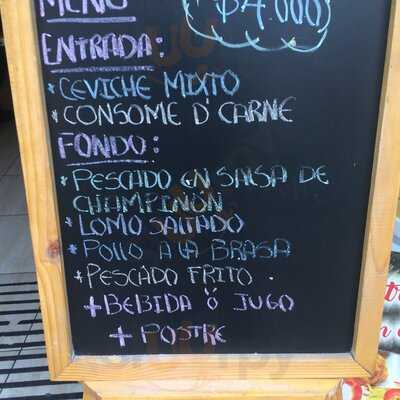 MENÚ $4.000
ENTRADA:
* CEVICHE MIXTO
* CONSOME D' CARNE
FONDO:
* PESCADO EN SALSA DE
CHAMPIÑON
* LOMO SALTADO
* POLLO A LA BRASA
* PESCADO FRITO.
+ BEBIDA Ó JUGO
+ POSTRE